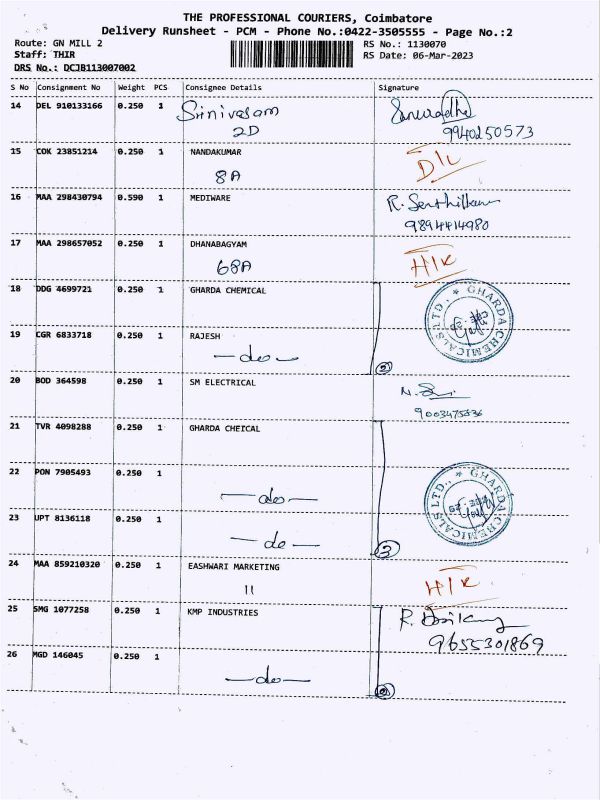 THE PROFESSIONAL COURIERS, Coimbatore
Delivery Runsheet - PCM - Phone No.:0422-3505555 - Page No.:2
Route: GN MILL 2
RS No.: 1130070
Staff: THIR
RS Date: 06-Mar-2023
DRS No.: DCJB113007002
S No Consignment No Weight PCS Consignee Details Signature
14 DEL 910133166 0.250 1 Srinivasam Anuradha
2D 9940250573
15 COK 23851214 0.250 1 NANDAKUMAR
8A D/L
16 MAA 298430794 0.590 1 MEDIWARE R. Senthilkumar
9894414980
17 MAA 298657052 0.250 1 DHANABAGYAM
68A H/K
18 DDG 4699721 0.250 1 GHARDA CHEMICAL
GHARDA CHEMICALS LTD.,
19 CGR 6833718 0.250 1 RAJESH
—do— 2
20 BOD 364598 0.250 1 SM ELECTRICAL
9003475836
21 TVR 4098288 0.250 1 GHARDA CHEICAL
22 PON 7905493 0.250 1
—do—
GHARDA CHEMICALS LTD.,
23 UPT 8136118 0.250 1
—do— 3
24 MAA 859210320 0.250 1 EASHWARI MARKETING
11 H/K
25 SMG 1077258 0.250 1 KMP INDUSTRIES
9655301869
26 MGD 146045 0.250 1
—do— 2